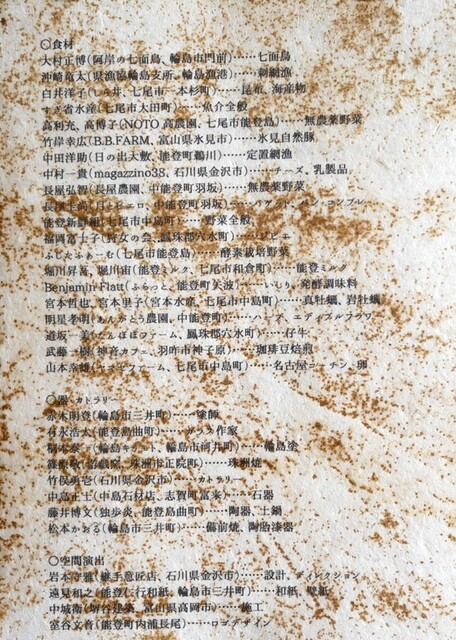 〇食材
大村正博(阿岸の七面鳥、輪島市門前)……七面鳥
沖崎竜太(県漁協輪島支所、輪島漁港)……刺網漁
白井洋子(しら井、七尾市一本杉町)……昆布、海産物
すぎ省水産(七尾市太田町)……魚介全般
高利充、高博子(NOTO 高農園、七尾市能登島)……無農薬野菜
竹岸幸広(B.B.FARM、富山県氷見市)……氷見自然豚
中田洋助(日の出大敷、能登町鵜川)……定置網漁
中村一貴(magazzino38、石川県金沢市)……チーズ、乳製品
長屋弘智(長屋農園、中能登町羽坂)……無農薬野菜
長屋上尚(月とピエロ、中能登町羽坂)……バゲット、パン・コンプレ
能登新野組(七尾市中島町)……野菜全般
福岡富士子(狩女の会、鳳珠郡穴水町)……ジビエ
ふじたふぁーむ(七尾市能登島)……酵素栽培野菜
堀川昇吾、堀川宙(能登ミルク、七尾市和倉町)……能登ミルク
Benjamin Flatt(ふらっと、能登町矢波)……いしり、発酵調味料
宮本哲也、宮本里子(宮本水産、七尾市中島町)……真牡蠣、岩牡蠣
明星孝昭(あんがとう農園、中能登町)……ハーブ、エディブルフラワー
道坂一美(たんぽぽファーム、鳳珠郡穴水町)……仔牛
武藤一樹(神音カフェ、羽咋市神子原)……珈琲豆焙煎
山本幸雄(ヤマモファーム、七尾市中島町)……名古屋コーチン、卵
〇器 カトラリー
赤木明登(輪島市三井町)……塗師
有永浩太(能登島曲町)……ガラス作家
桐本泰一(輪島キリモト、輪島市河井町)……輪島塗
篠原敬(游戯窯、珠洲市正院町)……珠洲焼
竹俣勇壱(石川県金沢市)……カトラリー
中島正士(中島石材店、志賀町富来)……石器
藤井博文(独歩炎、能登島曲町)……陶器、土鍋
松本かおる(輪島市三井町)……備前焼、陶胎漆器
〇空間演出
岩本守雅(継手意匠店、石川県金沢市)……設計、ディレクション
遠見和之(能登仁行和紙、輪島市三井町)……和紙、壁紙
中城衛(堺谷建築、富山県高岡市)……施工
室谷文音(能登町内浦長尾)……ロゴデザイン